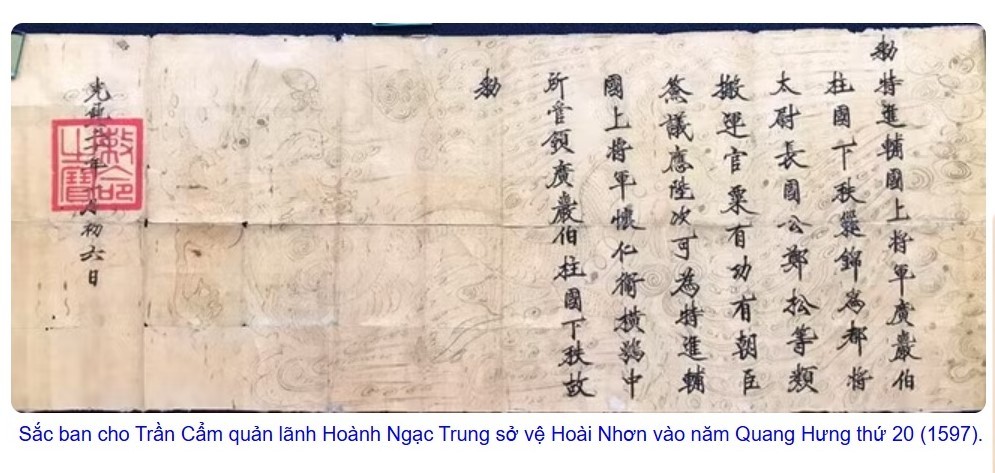 勅特進輔國上將軍廣巖伯
柱國下秩錦為都將
太尉長國公鄭松等類
搬運官粟有功有朝臣
僉議應陞次可為特進輔
國上將軍懷仁衛橫鶚中
所管領廣巖伯柱國下秩故
勅
光興二十年月初六日
敕命之寶
Sắc ban cho Trần Cẩm quản lãnh Hoành Ngạc Trung sở vệ Hoài Nhơn vào năm Quang Hưng thứ 20 (1597).